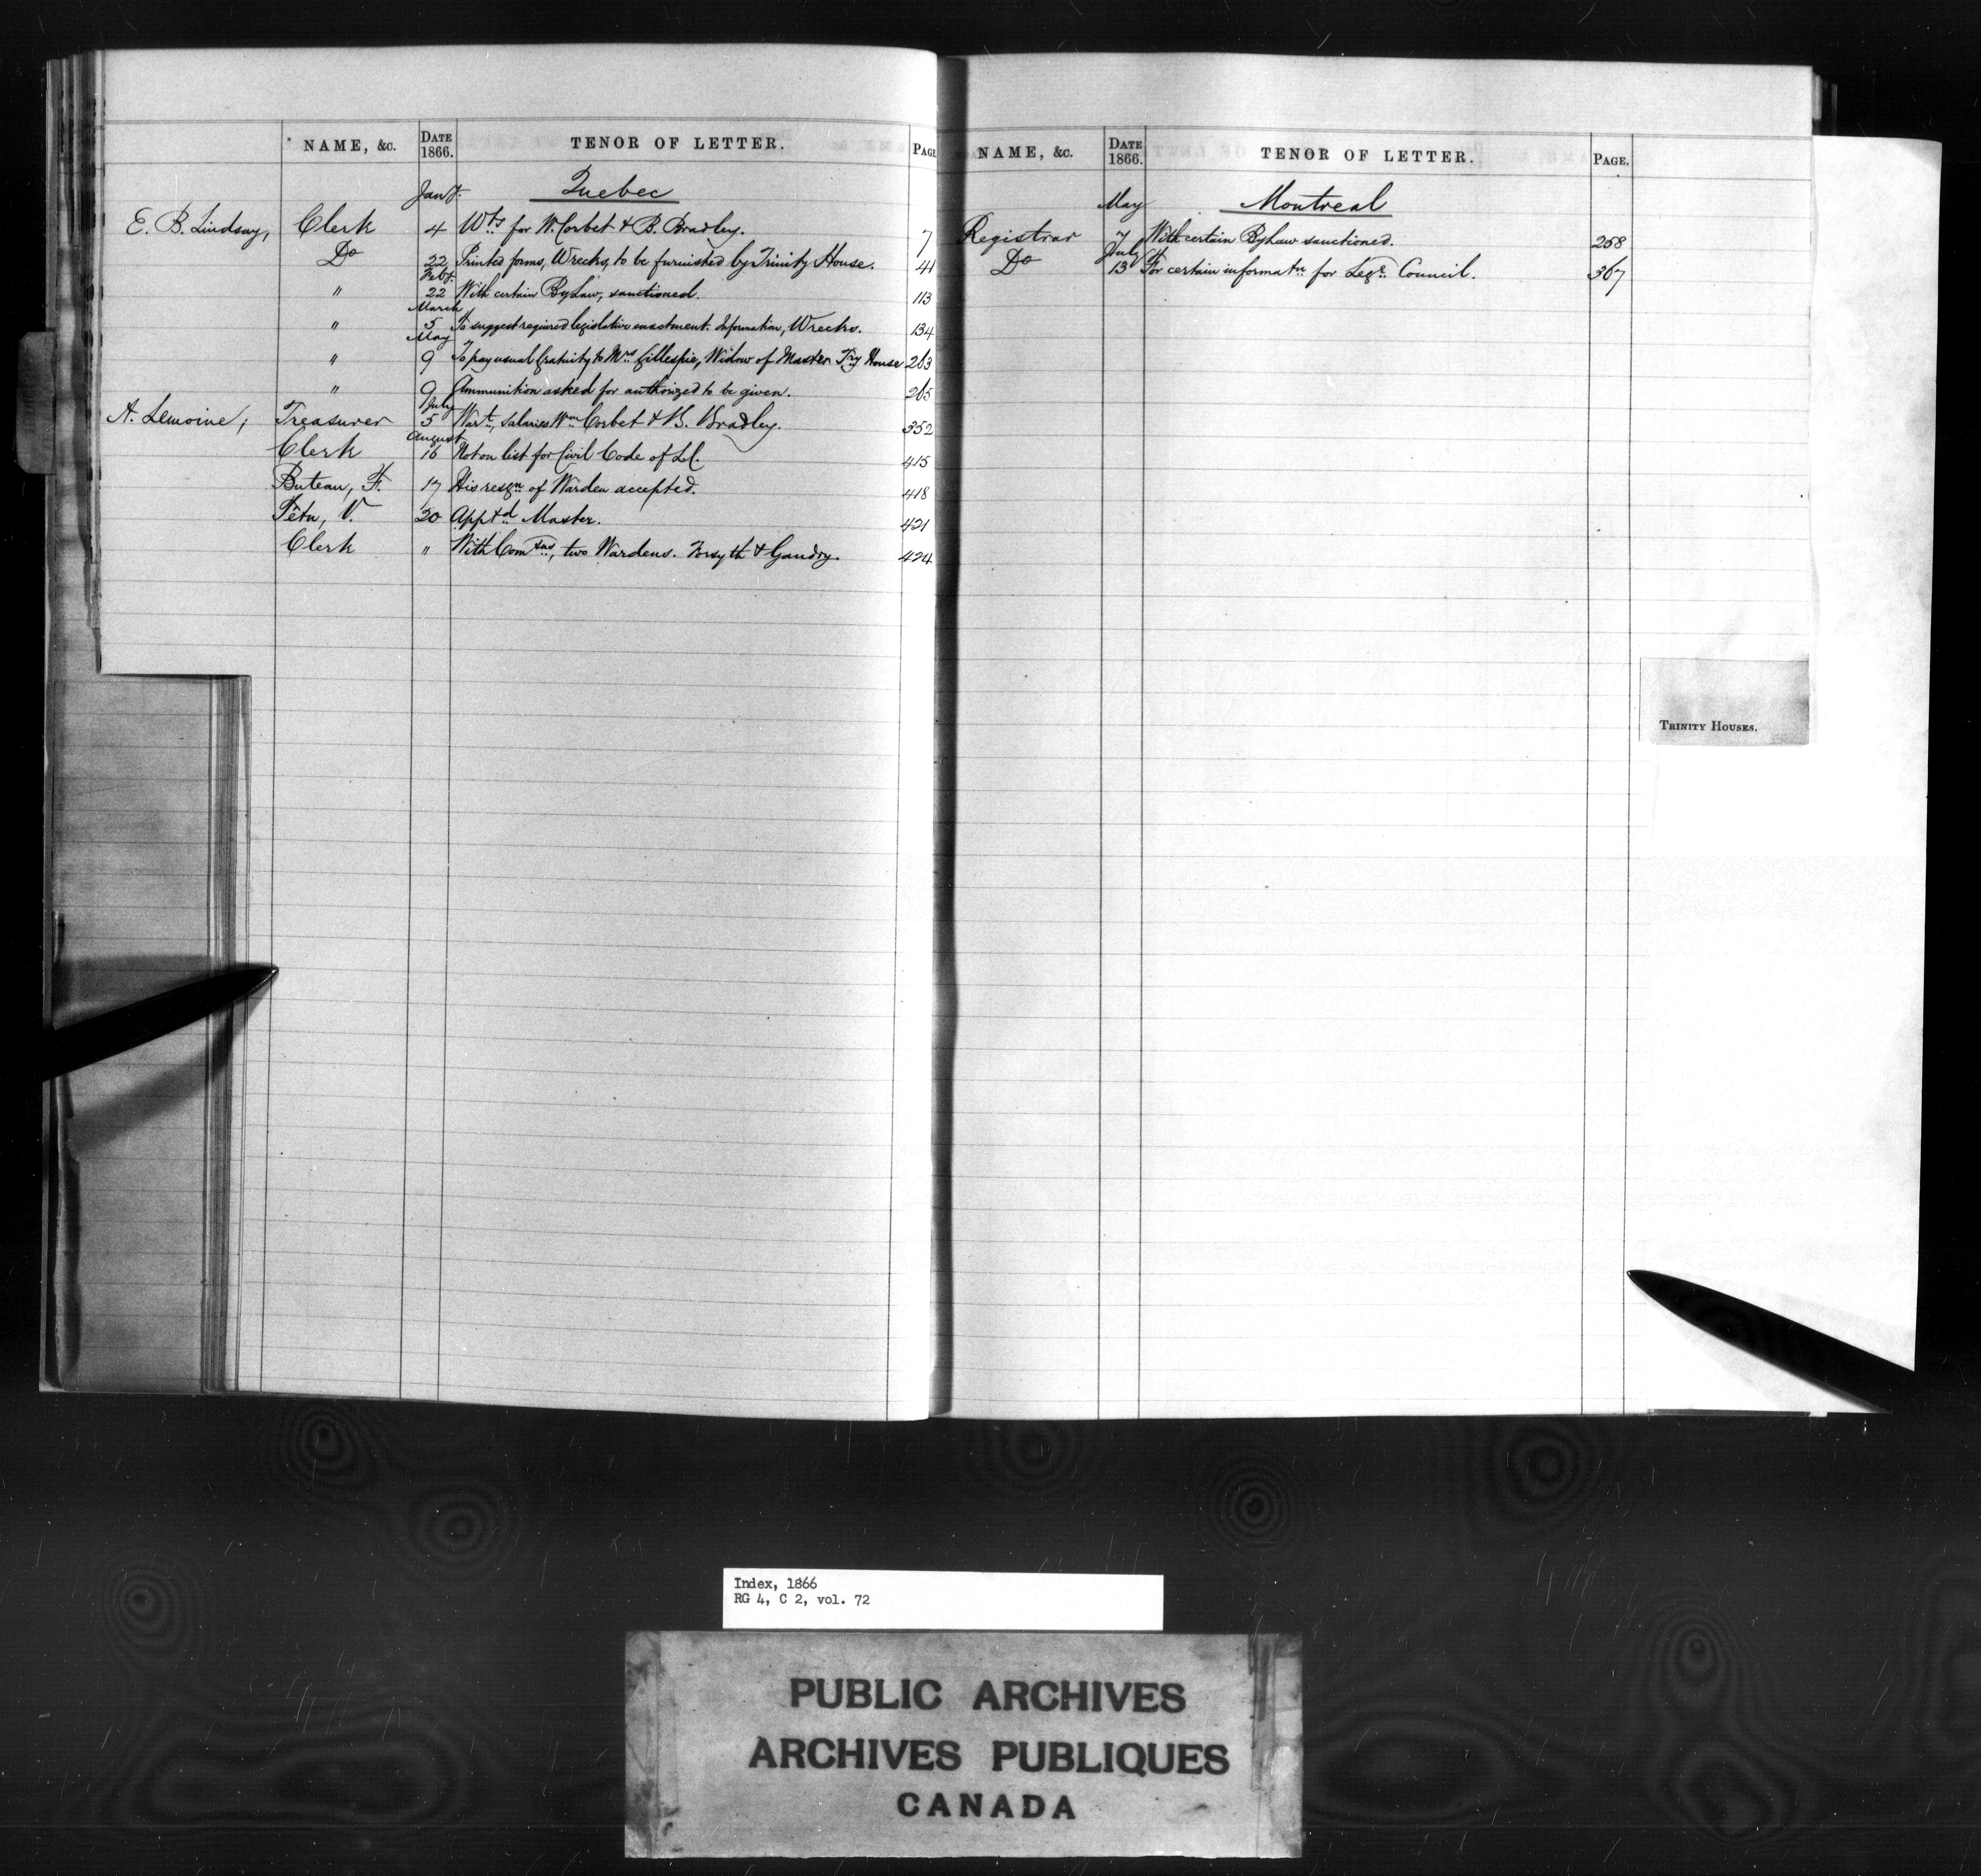 NAME, &c. DATE 1866. TENOR OF LETTER. PAGE
Jany. Quebec
E. B. Lindsay, Clerk 4 Wts for W. Corbet & B. Bradley. 7
Do 22 Printed forms, Wrecks, to be furnished by Trinity House. 41
Feby.
" 22 With certain By Law, sanctioned. 113
March
" 5 To suggest required legislative enactment. Information, Wrecks. 134
May
" 9 To pay usual Gratuity to Mrs Gillespie, Widow of Master Try House 263
" 9 Ammunition asked for authorized to be given. 265
July
A. Lemoine, Treasurer 5 Wart, Salaries Wm Corbet & B. Bradley. 352
August
Clerk 16 Not on list for Civil Code of L.C. 415
Buteau, F. 17 His resgn of Warden accepted. 418
Têtu, V. 20 Apptd Master. 421
Clerk " With Comsns, two Wardens. Forsyth & Gaudry. 424
NAME, &c. DATE 1866. TENOR OF LETTER. PAGE.
May Montreal
Registrar 7 With certain By Law sanctioned. 258
July
Do 13 For certain informatn for Lege. Council. 367
TRINITY HOUSES.
Index, 1866
RG 4, C 2, vol. 72
PUBLIC ARCHIVES
ARCHIVES PUBLIQUES
CANADA